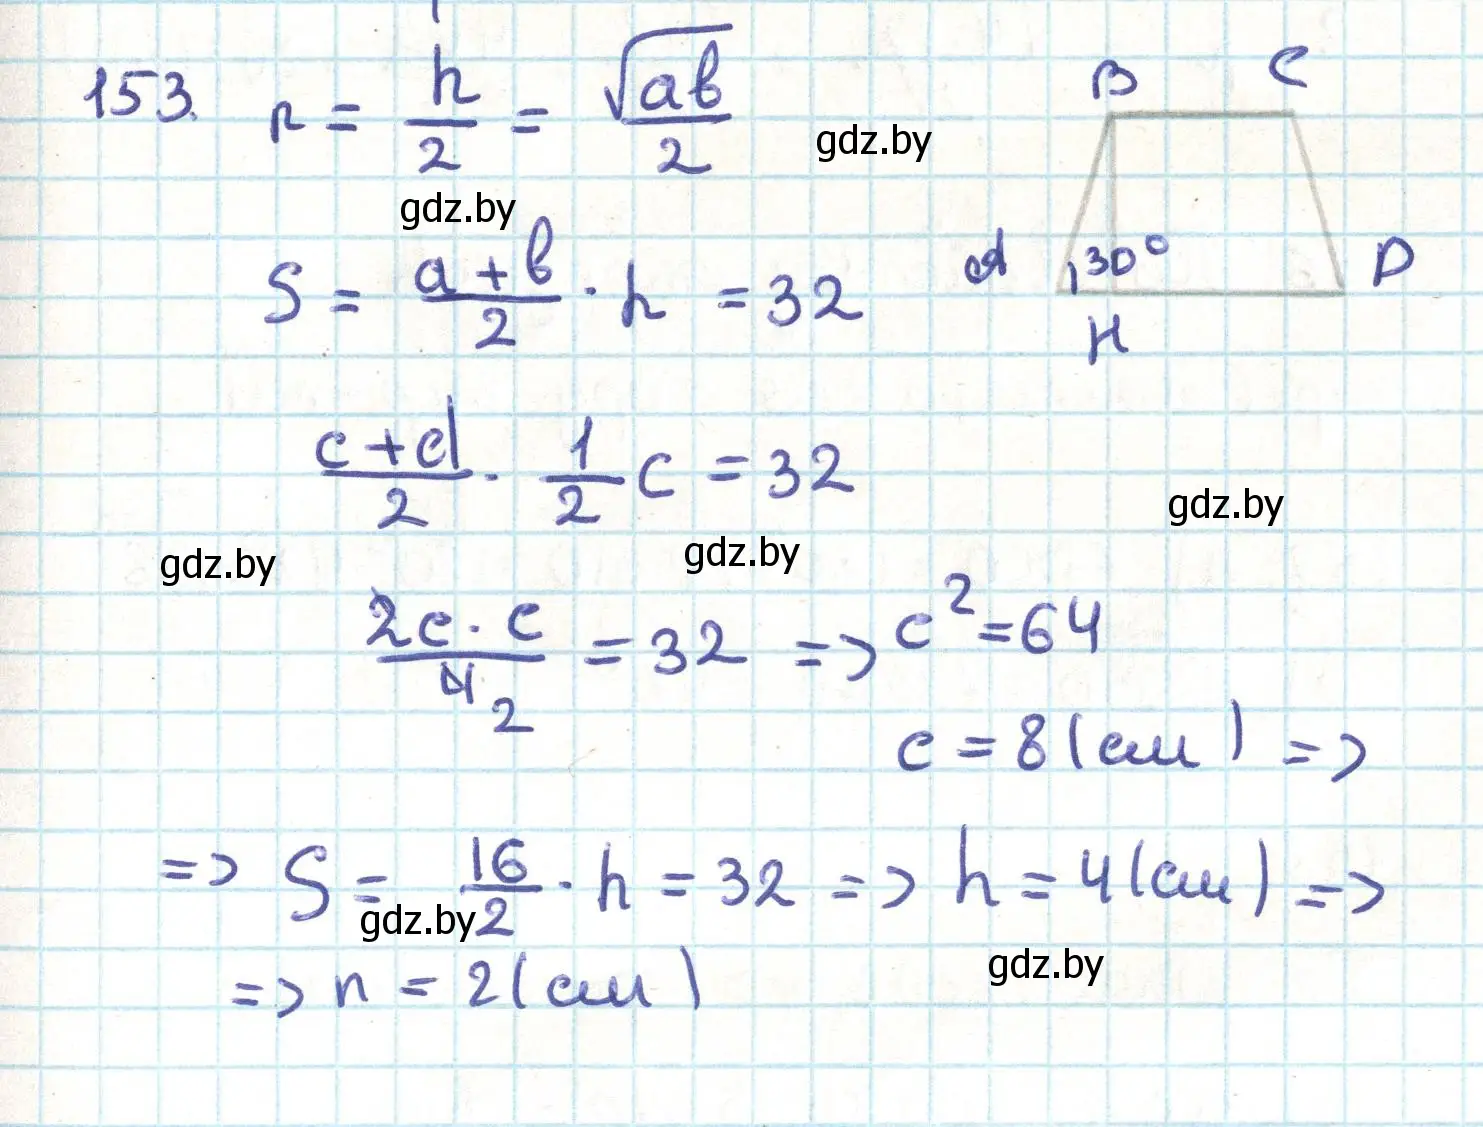 153. r = h/2 = √ab/2
B C
gdz.by
gdz.by
S = (a + b)/2 · h = 32
A 30° D
H
(c + d)/2 · 1/2 c = 32
gdz.by
gdz.by
gdz.by
2c · c/4 2 = 32 => c² = 64
c = 8 (см) =>
=> S = 16/2 · h = 32 => h = 4 (см) =>
gdz.by
gdz.by
=> r = 2 (см)